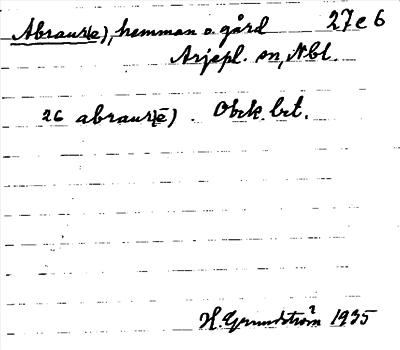 Abraur(e), hemman o. gård 27e6
Arjepl. sn, Nbl.
26 abraur(ē). Obek. bet.
H. Grundström 1935